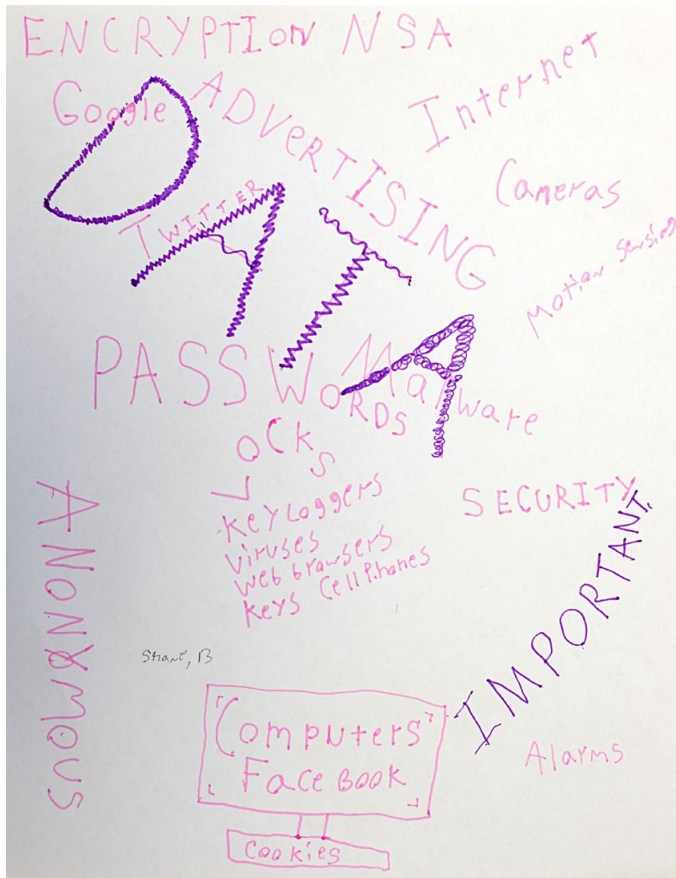 ENCRYPTION NSA
Google
ADVERTISING
Internet
Cameras
Motion Sensing
DATA
TWITTER
PASSWORDS
Malware
LOCKS
KeyLoggers
Viruses
Web browsers
Keys Cell Phones
SECURITY
IMPORTANT
ANONYMOUS
Shane, B
Computers
FaceBook
Cookies
Alarms